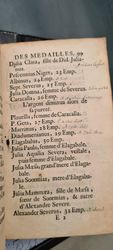 DES MEDAILLES. 99
Didia Clara, fille de Did. Julia-
nus.
Pescennius Niger, 23 Emp.
Albinus, 24 Emp.
Sept. Severus, 25 Emp.
Julia Domna, femme de Severus.
Caracalla, 26 Emp.
L'argent diminua alors de
sa pureté.
Plautilla, femme de Caracalla.
P. Geta, 27 Emp.
Macrinus, 28 Emp.
Diadumenianus, 29 Emp.
Elagabalus, 30 Emp.
Julia Paula, femme d'Elagabale.
Julia Aquilia Severa, vestale,
puis femme d'Elagabale.
Julia Mæsa, grand'mere d'Elaga-
bale.
Julia Soæmias, mere d'Elagaba-
le.
Julia Mammæa, fille de Mæsa,
sœur de Soæmias, & mere
d'Alexandre Severe.
Alexander Severus, 31 Emp.
E 2